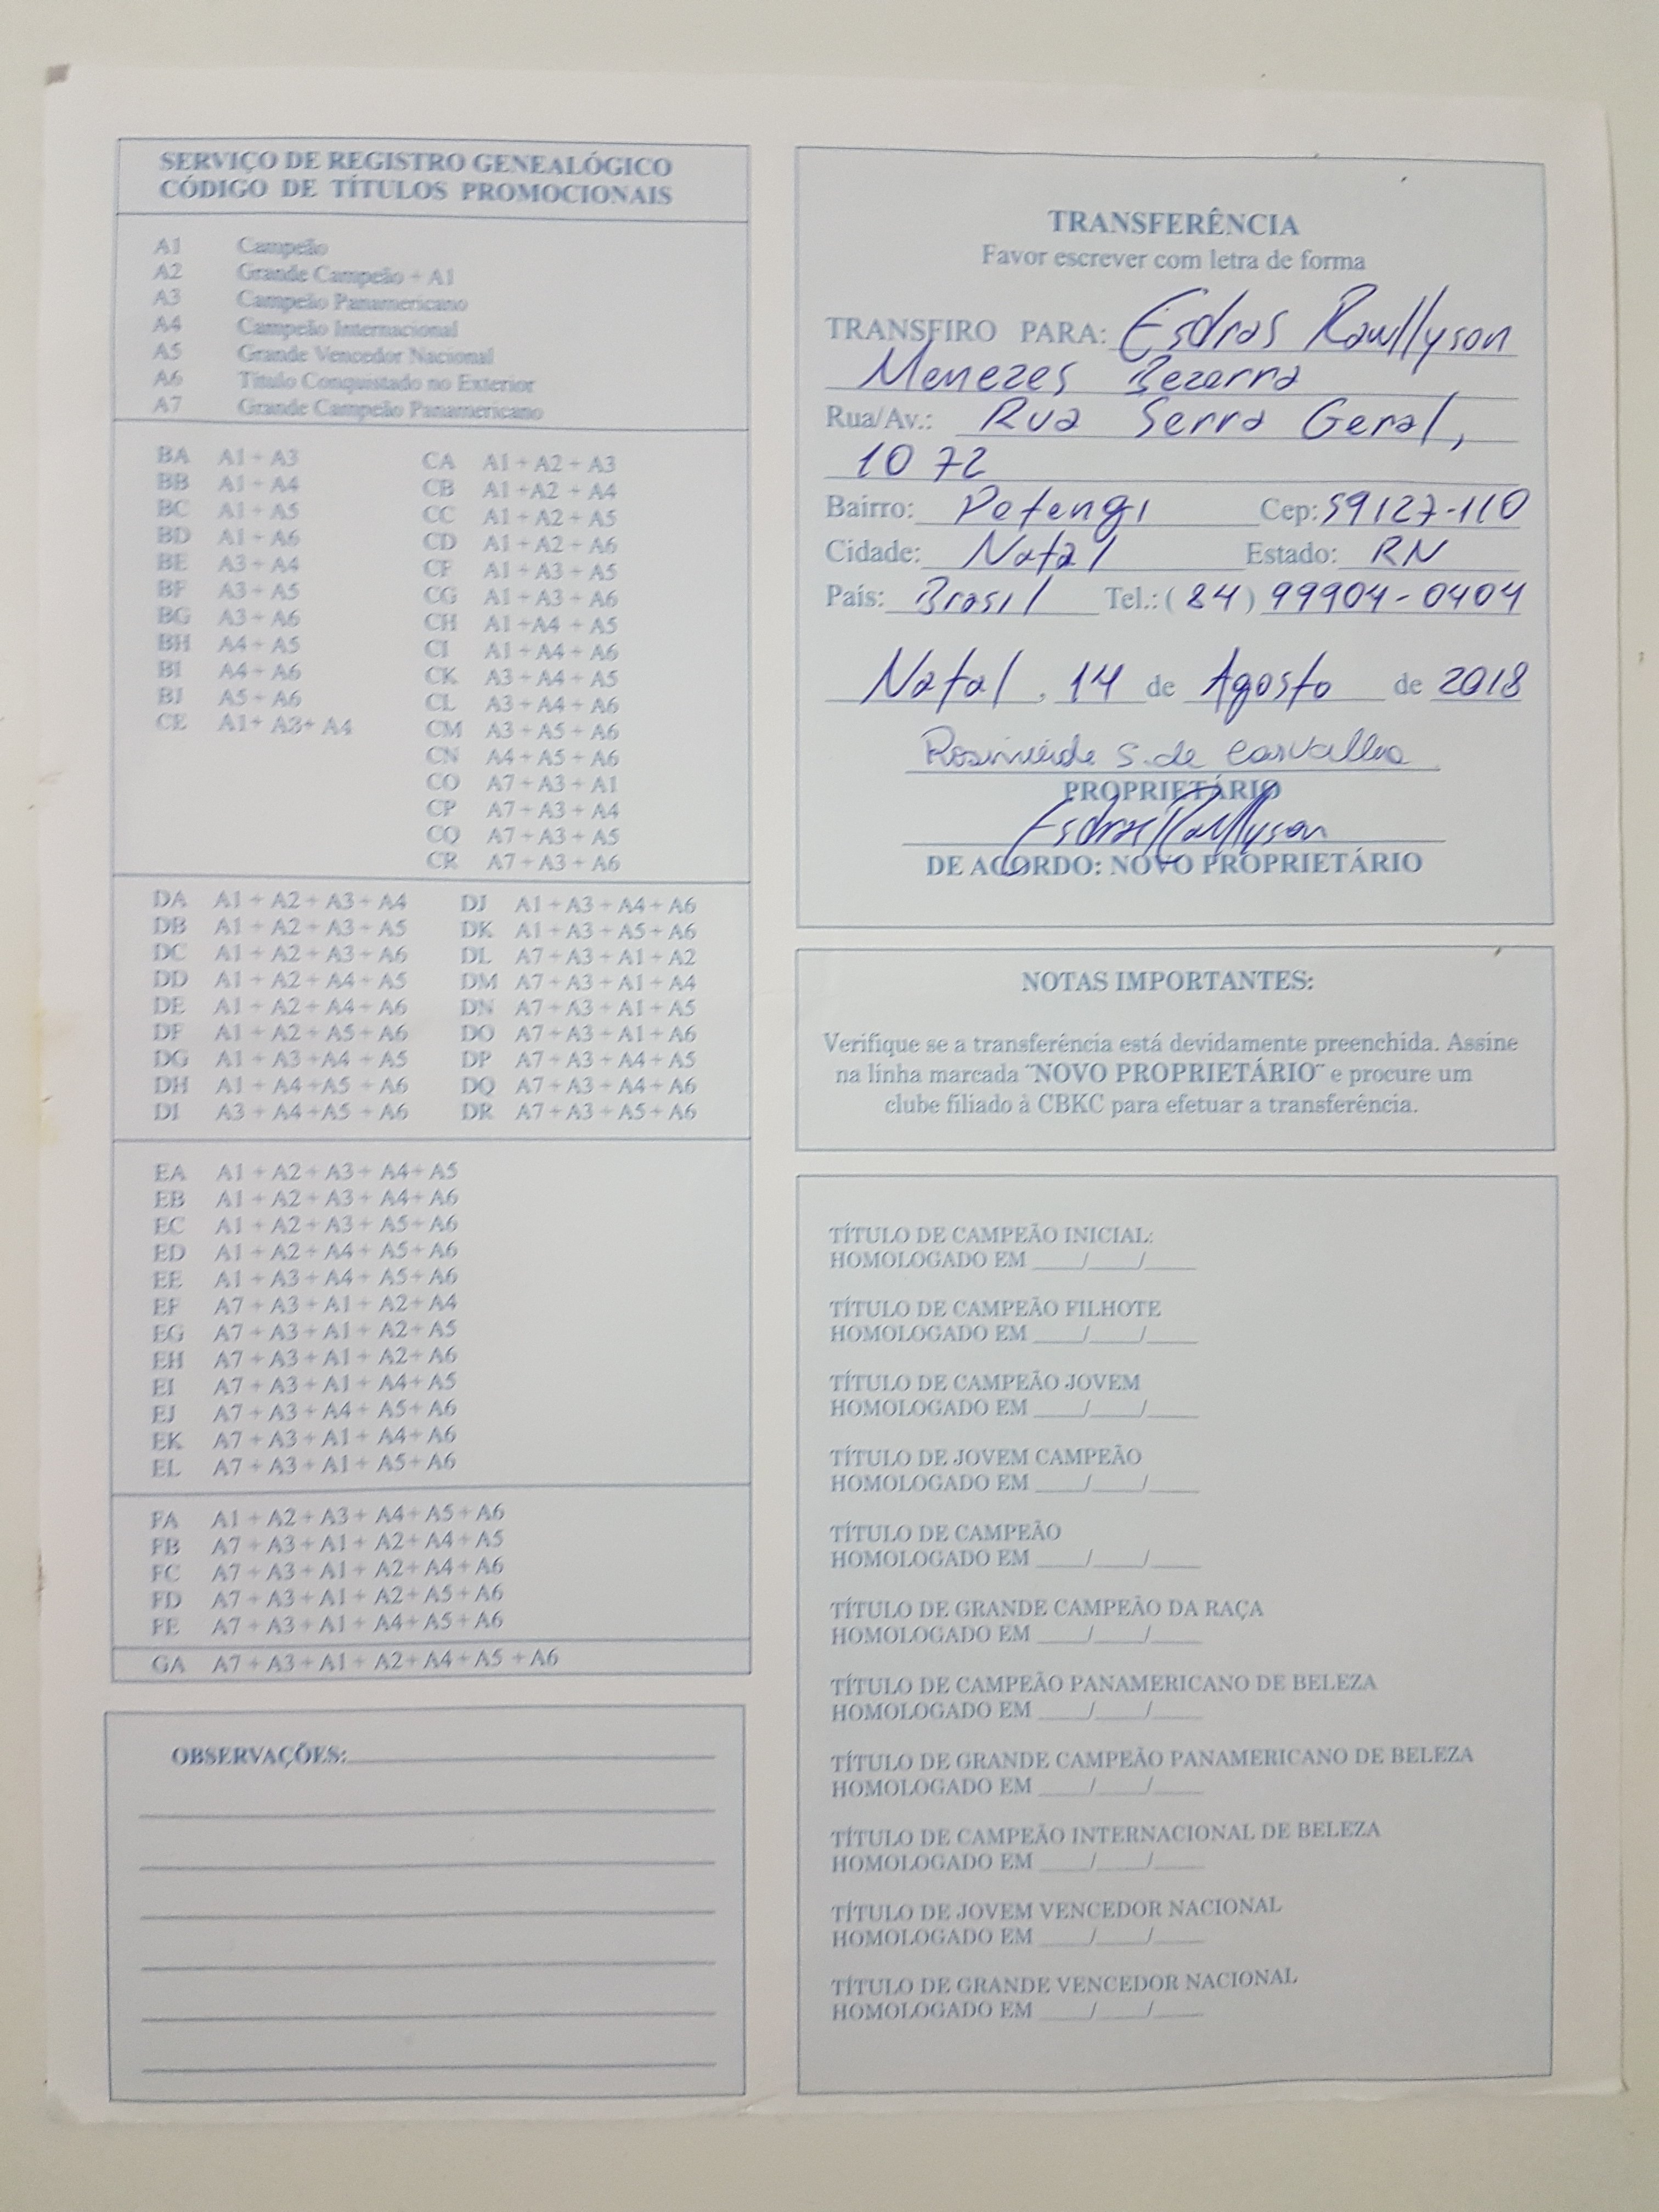 SERVIÇO DE REGISTRO GENEALÓGICO
CÓDIGO DE TÍTULOS PROMOCIONAIS
A1 Campeão
A2 Grande Campeão + A1
A3 Campeão Panamericano
A4 Campeão Internacional
A5 Grande Vencedor Nacional
A6 Título Conquistado no Exterior
A7 Grande Campeão Panamericano
BA A1 + A3
BB A1 + A4
BC A1 + A5
BD A1 + A6
BE A3 + A4
BF A3 + A5
BG A3 + A6
BH A4 + A5
BI A4 + A6
BJ A5 + A6
CE A1+ A3+ A4
CA A1 + A2 + A3
CB A1 +A2 + A4
CC A1 + A2 + A5
CD A1 + A2 + A6
CF A1 + A3 + A5
CG A1 + A3 + A6
CH A1 +A4 + A5
CI A1 + A4 + A6
CK A3 + A4 + A5
CL A3 + A4 + A6
CM A3 + A5 + A6
CN A4 + A5 + A6
CO A7 + A3 + A1
CP A7 + A3 + A4
CQ A7 + A3 + A5
CR A7 + A3 + A6
DA A1 + A2 + A3 + A4
DB A1 + A2 + A3 + A5
DC A1 + A2 + A3 + A6
DD A1 + A2 + A4 + A5
DE A1 + A2 + A4 + A6
DF A1 + A2 + A5 + A6
DG A1 + A3 +A4 + A5
DH A1 + A4 +A5 + A6
DI A3 + A4 +A5 + A6
DJ A1 + A3 + A4 + A6
DK A1 + A3 + A5 + A6
DL A7 + A3 + A1 + A2
DM A7 + A3 + A1 + A4
DN A7 + A3 + A1 + A5
DO A7 + A3 + A1 + A6
DP A7 + A3 + A4 + A5
DQ A7 + A3 + A4 + A6
DR A7 + A3 + A5 + A6
EA A1 + A2 + A3 + A4+ A5
EB A1 + A2 + A3 + A4+ A6
EC A1 + A2 + A3 + A5+ A6
ED A1 + A2 + A4 + A5+ A6
EE A1 + A3 + A4 + A5+ A6
EF A7 + A3 + A1 + A2+ A4
EG A7 + A3 + A1 + A2+ A5
EH A7 + A3 + A1 + A2+ A6
EI A7 + A3 + A1 + A4+ A5
EJ A7 + A3 + A4 + A5+ A6
EK A7 + A3 + A1 + A4+ A6
EL A7 + A3 + A1 + A5+ A6
FA A1 + A2 + A3 + A4+ A5 + A6
FB A7 + A3 + A1 + A2+ A4 + A5
FC A7 + A3 + A1 + A2+ A4 + A6
FD A7 + A3 + A1 + A2+ A5 + A6
FE A7 + A3 + A1 + A4+ A5 + A6
GA A7 + A3 + A1 + A2+ A4 + A5 + A6
OBSERVAÇÕES:
TRANSFERÊNCIA
Favor escrever com letra de forma
TRANSFIRO PARA: Esdras Raullyson
Menezes Bezerra
Rua/Av.: Rua Serra Geral,
1072
Bairro: Potengi Cep: 59127-110
Cidade: Natal Estado: RN
País: Brasil Tel.: (84) 99904-0404
Natal, 14 de Agosto de 2018
Rosineide S. de Carvalho
PROPRIETÁRIO
Esdras Raullyson
DE ACORDO: NOVO PROPRIETÁRIO
NOTAS IMPORTANTES:
Verifique se a transferência está devidamente preenchida. Assine
na linha marcada ¨NOVO PROPRIETÁRIO¨ e procure um
clube filiado à CBKC para efetuar a transferência.
TÍTULO DE CAMPEÃO INICIAL:
HOMOLOGADO EM ____/____/____
TÍTULO DE CAMPEÃO FILHOTE
HOMOLOGADO EM ____/____/____
TÍTULO DE CAMPEÃO JOVEM
HOMOLOGADO EM ____/____/____
TÍTULO DE JOVEM CAMPEÃO
HOMOLOGADO EM ____/____/____
TÍTULO DE CAMPEÃO
HOMOLOGADO EM ____/____/____
TÍTULO DE GRANDE CAMPEÃO DA RAÇA
HOMOLOGADO EM ____/____/____
TÍTULO DE CAMPEÃO PANAMERICANO DE BELEZA
HOMOLOGADO EM ____/____/____
TÍTULO DE GRANDE CAMPEÃO PANAMERICANO DE BELEZA
HOMOLOGADO EM ____/____/____
TÍTULO DE CAMPEÃO INTERNACIONAL DE BELEZA
HOMOLOGADO EM ____/____/____
TÍTULO DE JOVEM VENCEDOR NACIONAL
HOMOLOGADO EM ____/____/____
TÍTULO DE GRANDE VENCEDOR NACIONAL
HOMOLOGADO EM ____/____/____